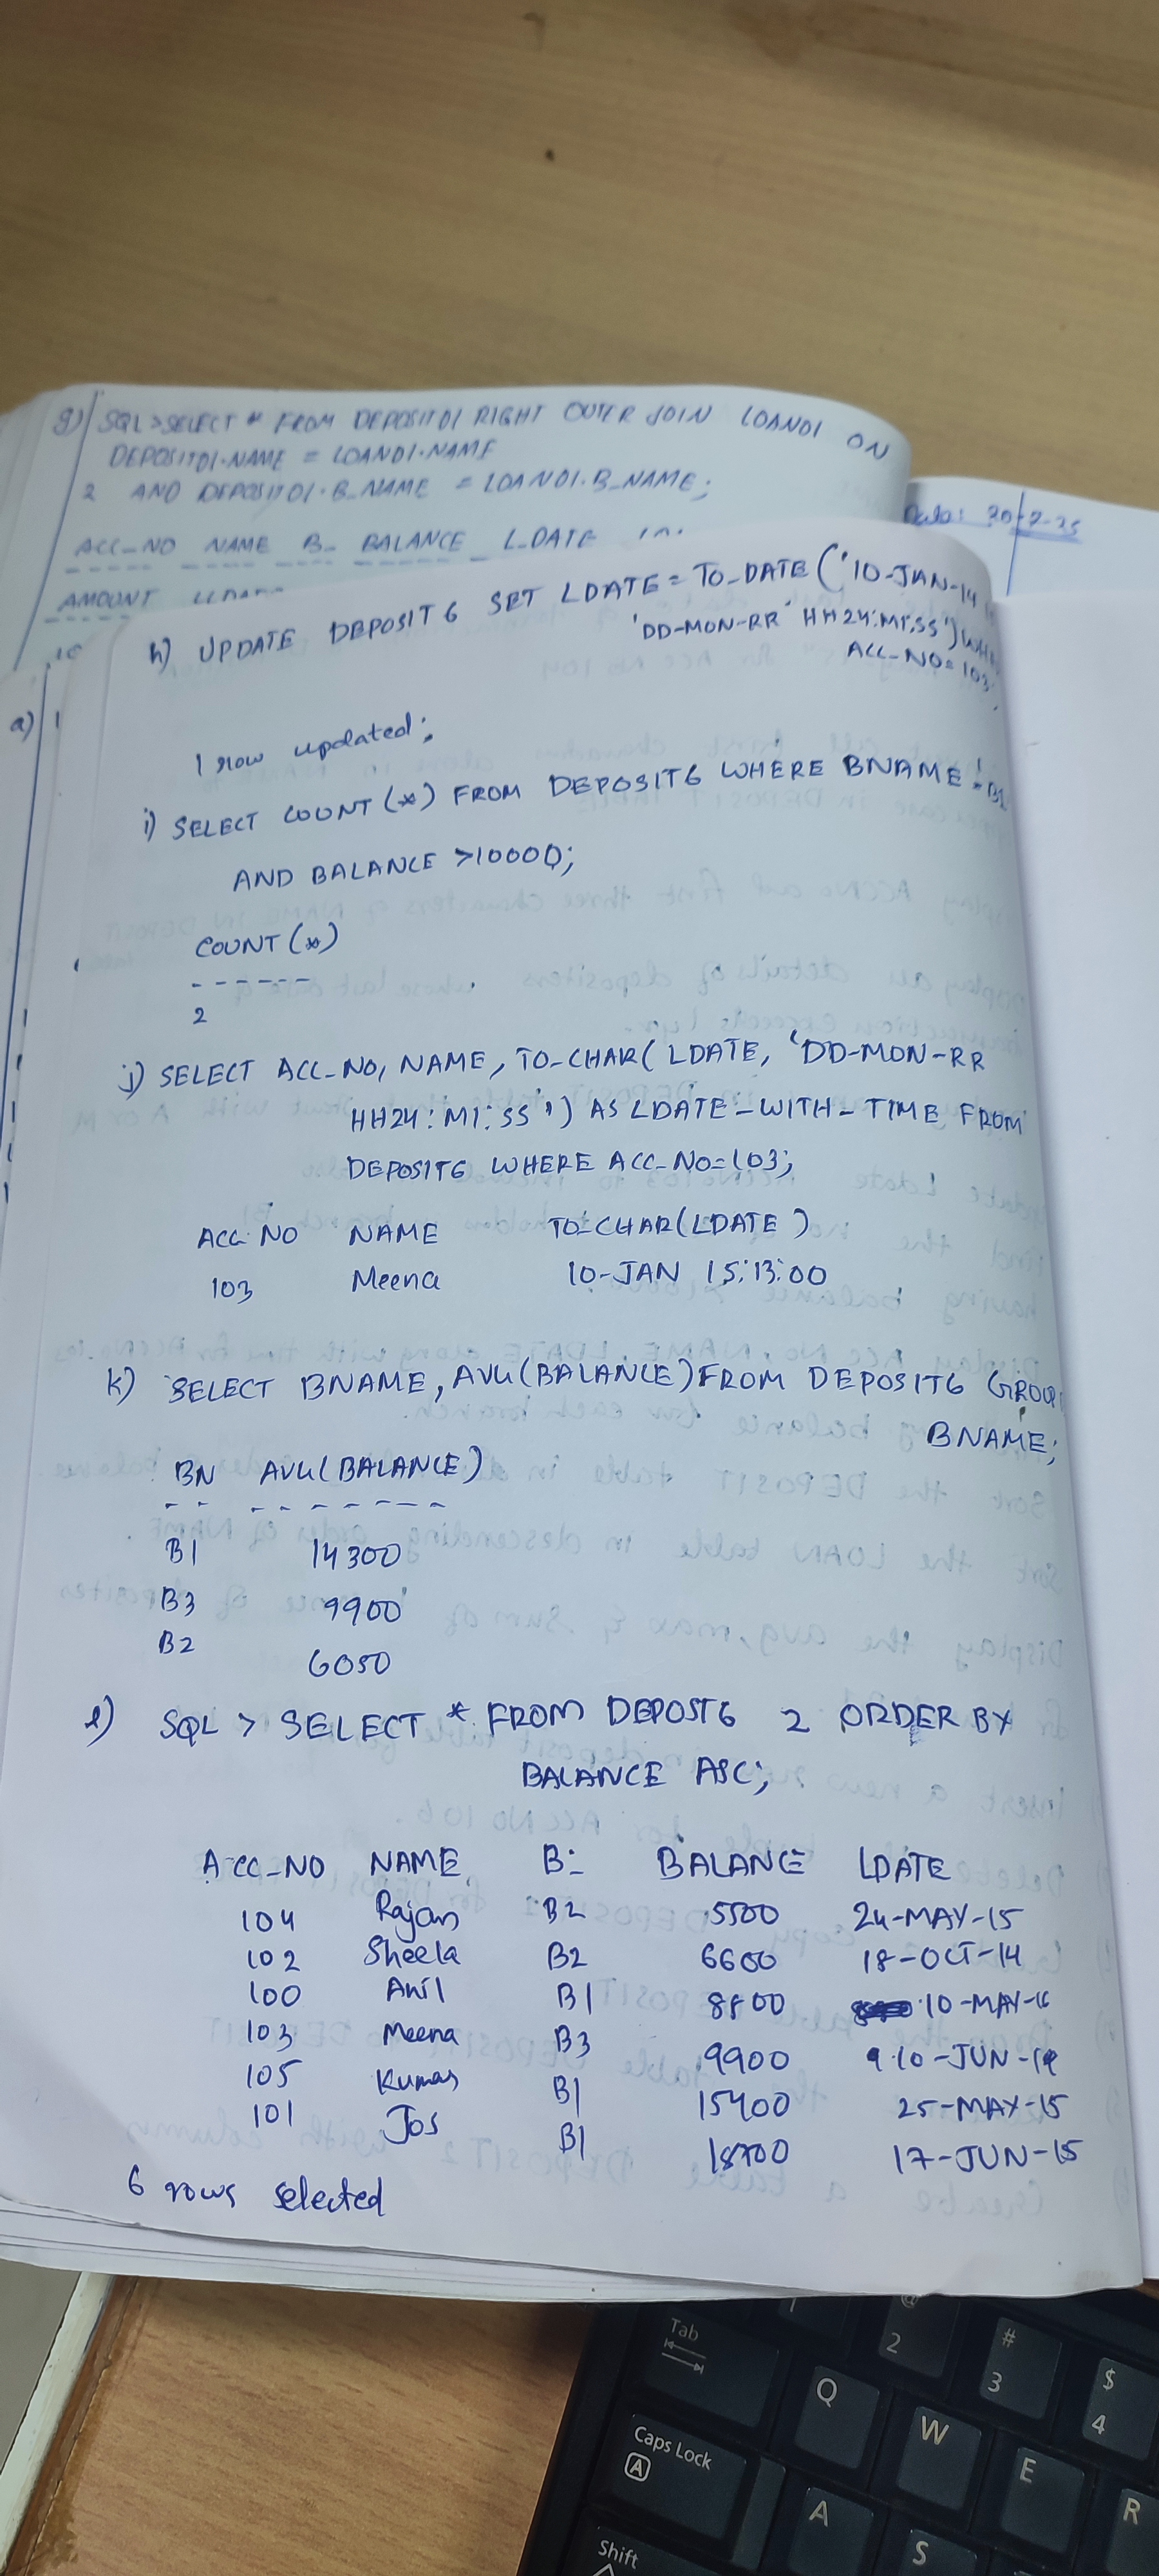 g) SQL>SELECT * FROM DEPOSIT01 RIGHT OUTER JOIN LOAN01 ON
DEPOSIT01.NAME = LOAN01.NAME
2 AND DEPOSIT01.B_NAME = LOAN01.B_NAME;
ACC_NO NAME B_ BALANCE LDATE
AMOUNT
Date: 30-7-25
a)
h) UPDATE DEPOSIT6 SET LDATE = TO_DATE ('10-JAN-14
'DD-MON-RR HH24:MI:SS')
ACC_NO=103;
1 row updated;
i) SELECT COUNT(*) FROM DEPOSIT6 WHERE BNAME = 'B1
AND BALANCE >10000;
COUNT(*)
- - - - - -
2
j) SELECT ACC_NO, NAME, TO_CHAR( LDATE, 'DD-MON-RR
HH24:MI:SS') AS LDATE-WITH-TIME FROM
DEPOSIT6 WHERE ACC_NO=103;
ACC NO NAME TO_CHAR(LDATE )
103 Meena 10-JAN 15:13:00
k) SELECT BNAME, AVG(BALANCE) FROM DEPOSIT6 GROUP
BNAME;
BN AVG(BALANCE)
- - - - - - - - -
B1 14300
B3 9900
B2 6050
l) SQL > SELECT * FROM DEPOST6 2 ORDER BY
BALANCE ASC;
ACC_NO NAME B: BALANCE LDATE
104 Rajan B2 5500 24-MAY-15
102 Sheela B2 6600 18-OCT-14
100 Anil B1 8800 10-MAY-16
103 Meena B3 9900 10-JUN-
105 Kumar B1 15400 25-MAY-15
101 Jos B1 18700 17-JUN-15
6 rows selected
Tab
2
#
3
$
4
Q
W
E
R
Caps Lock
A
A
S
Shift